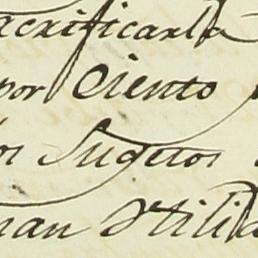 acrificarla
por Ciento
os Sugetos
nan Utili